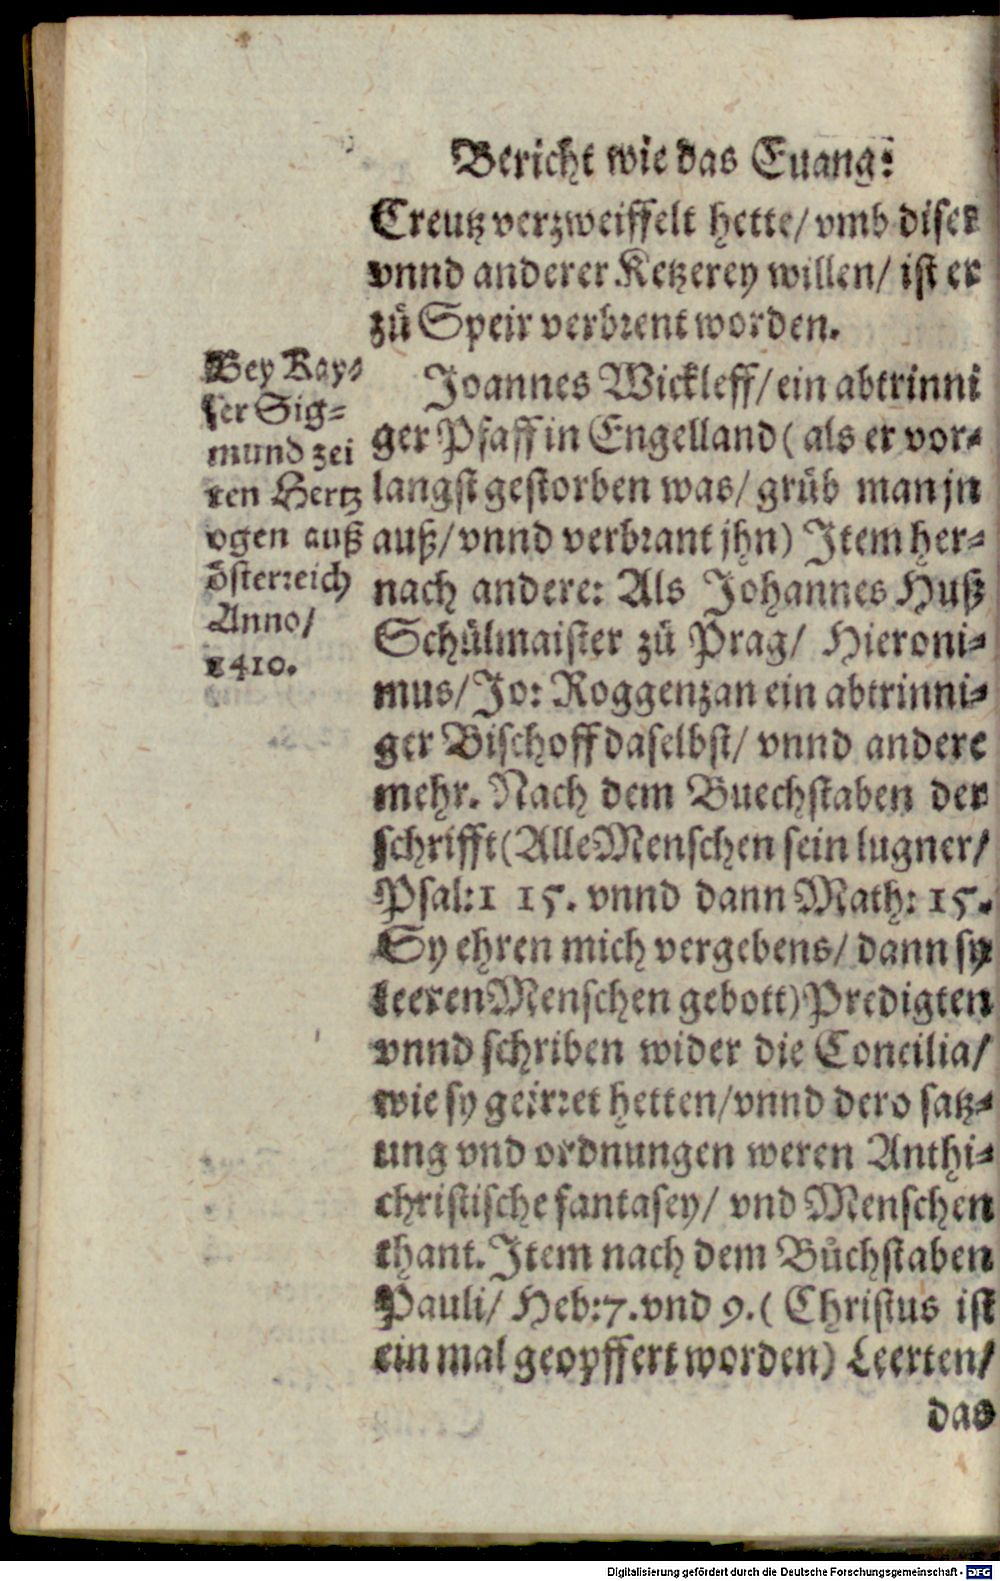 Bericht wie das Euang:
Creutz verzweiffelt hette/ vmb diser
vnnd anderer Ketzerey willen/ ist er
zů Speir verbrent worden.
Bey Kay-
ser Sig-
mund zei
ten Hertz
ogen auß
österreich
Anno/
1410.
Joannes Wickleff/ ein abtrinni
ger Pfaff in Engelland ( als er vor-
langst gestorben was/ grůb man jn
auß/ vnnd verbrant jhn) Item her-
nach andere: Als Johannes Huß
Schůlmaister zů Prag/ Hieroni-
mus/ Jo: Roggenzan ein abtrinni-
ger Bischoff daselbst/ vnnd andere
mehr. Nach dem Buechstaben der
schrifft (Alle Menschen sein lugner/
Psal:1 15. vnnd dann Math: 15.
Sy ehren mich vergebens/ dann sy
leeren Menschen gebott) Predigten
vnnd schriben wider die Concilia/
wie sy geirret hetten/ vnnd dero satz-
ung vnd ordnungen weren Anthi-
christische fantasey/ vnd Menschen
thant. Item nach dem Bůchstaben
Pauli/ Heb:7. vnd 9. ( Christus ist
ein mal geopffert worden) Leerten/
das
Digitalisierung gefördert durch die Deutsche Forschungsgemeinschaft - DFG